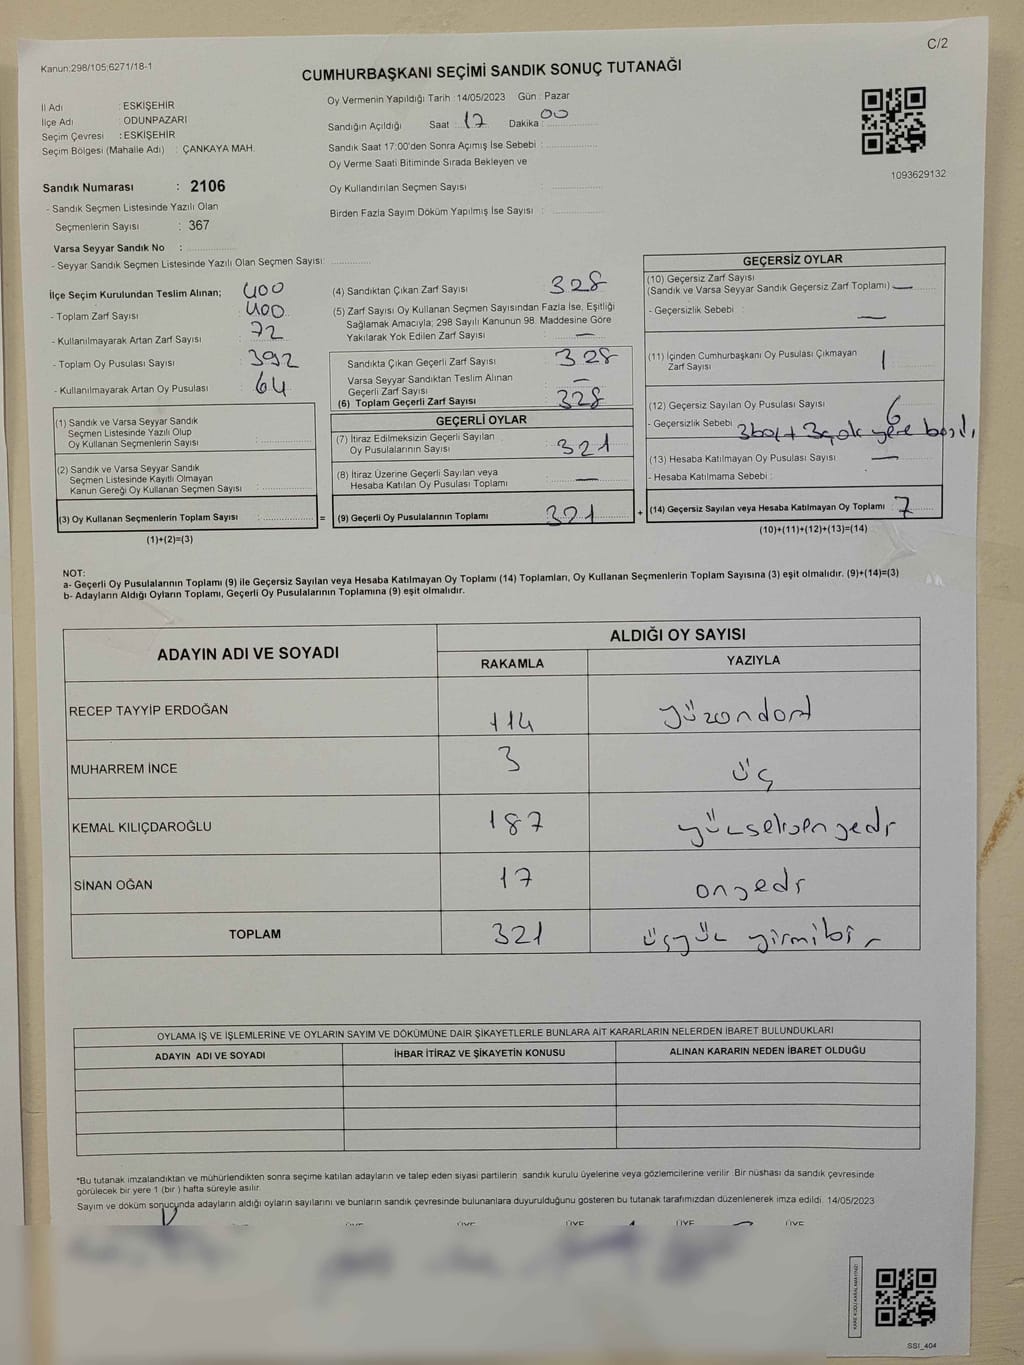 C/2
Kanun:298/105;6271/18-1
CUMHURBAŞKANI SEÇİMİ SANDIK SONUÇ TUTANAĞI
İl Adı : ESKİŞEHİR
İlçe Adı : ODUNPAZARI
Seçim Çevresi : ESKİŞEHİR
Seçim Bölgesi (Mahalle Adı) : ÇANKAYA MAH.
Oy Vermenin Yapıldığı Tarih :14/05/2023 Gün : Pazar
Sandığın Açıldığı Saat : 17 Dakika : 00
Sandık Saat 17:00'den Sonra Açımış İse Sebebi :
Oy Verme Saati Bitiminde Sırada Bekleyen ve
Oy Kullandırılan Seçmen Sayısı :
Birden Fazla Sayım Döküm Yapılmış İse Sayısı :
1093629132
Sandık Numarası : 2106
- Sandık Seçmen Listesinde Yazılı Olan
Seçmenlerin Sayısı : 367
Varsa Seyyar Sandık No :
- Seyyar Sandık Seçmen Listesinde Yazılı Olan Seçmen Sayısı:
İlçe Seçim Kurulundan Teslim Alınan; 400
- Toplam Zarf Sayısı : 400
- Kullanılmayarak Artan Zarf Sayısı : 72
- Toplam Oy Pusulası Sayısı : 392
- Kullanılmayarak Artan Oy Pusulası : 64
(1) Sandık ve Varsa Seyyar Sandık
Seçmen Listesinde Yazılı Olup
Oy Kullanan Seçmenlerin Sayısı :
(2) Sandık ve Varsa Seyyar Sandık
Seçmen Listesinde Kayıtlı Olmayan
Kanun Gereği Oy Kullanan Seçmen Sayısı :
(3) Oy Kullanan Seçmenlerin Toplam Sayısı : =
(1)+(2)=(3)
(4) Sandıktan Çıkan Zarf Sayısı : 328
(5) Zarf Sayısı Oy Kullanan Seçmen Sayısından Fazla İse, Eşitliği
Sağlamak Amacıyla; 298 Sayılı Kanunun 98. Maddesine Göre
Yakılarak Yok Edilen Zarf Sayısı : —
Sandıkta Çıkan Geçerli Zarf Sayısı : 328
Varsa Seyyar Sandıktan Teslim Alınan
Geçerli Zarf Sayısı : —
(6) Toplam Geçerli Zarf Sayısı : 328
GEÇERLİ OYLAR
(7) İtiraz Edilmeksizin Geçerli Sayılan
Oy Pusulalarının Sayısı : 321
(8) İtiraz Üzerine Geçerli Sayılan veya
Hesaba Katılan Oy Pusulası Toplamı : —
(9) Geçerli Oy Pusulalarının Toplamı 321 +
GEÇERSİZ OYLAR
(10) Geçersiz Zarf Sayısı
(Sandık ve Varsa Seyyar Sandık Geçersiz Zarf Toplamı) —
- Geçersizlik Sebebi : —
(11) İçinden Cumhurbaşkanı Oy Pusulası Çıkmayan
Zarf Sayısı 1
(12) Geçersiz Sayılan Oy Pusulası Sayısı : 6
- Geçersizlik Sebebi 3 boş + 3 çok yere basılı
(13) Hesaba Katılmayan Oy Pusulası Sayısı —
- Hesaba Katılmama Sebebi :
(14) Geçersiz Sayılan veya Hesaba Katılmayan Oy Toplamı : 7
(10)+(11)+(12)+(13)=(14)
NOT:
a- Geçerli Oy Pusulalarının Toplamı (9) ile Geçersiz Sayılan veya Hesaba Katılmayan Oy Toplamı (14) Toplamları, Oy Kullanan Seçmenlerin Toplam Sayısına (3) eşit olmalıdır. (9)+(14)=(3)
b- Adayların Aldığı Oyların Toplamı, Geçerli Oy Pusulalarının Toplamına (9) eşit olmalıdır.
ADAYIN ADI VE SOYADI
ALDIĞI OY SAYISI
RAKAMLA YAZIYLA
RECEP TAYYİP ERDOĞAN 114 yüzondört
MUHARREM İNCE 3 üç
KEMAL KILIÇDAROĞLU 187 yüzseksenyedi
SİNAN OĞAN 17 onyedi
TOPLAM 321 üçyüz yirmibir
OYLAMA İŞ VE İŞLEMLERİNE VE OYLARIN SAYIM VE DÖKÜMÜNE DAİR ŞİKAYETLERLE BUNLARA AİT KARARLARIN NELERDEN İBARET BULUNDUKLARI
ADAYIN ADI VE SOYADI İHBAR İTİRAZ VE ŞİKAYETİN KONUSU ALINAN KARARIN NEDEN İBARET OLDUĞU
*Bu tutanak imzalandıktan ve mühürlendikten sonra seçime katılan adayların ve talep eden siyasi partilerin sandık kurulu üyelerine veya gözlemcilerine verilir. Bir nüshası da sandık çevresinde
görülecek bir yere 1 (bir) hafta süreyle asılır.
Sayım ve döküm sonucunda adayların aldığı oyların sayılarını ve bunların sandık çevresinde bulunanlara duyurulduğunu gösteren bu tutanak tarafımızdan düzenlenerek imza edildi. 14/05/2023
ÜYE ÜYE ÜYE ÜYE ÜYE
KARE KODU KARALAMAYINIZ!
SSİ_404